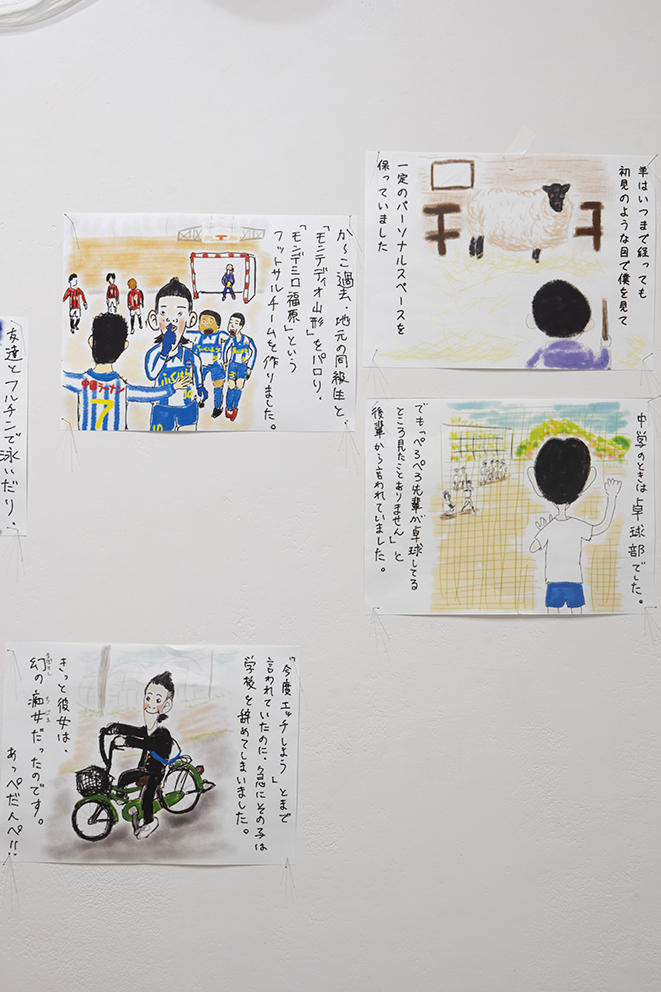 羊はいつまで経っても
初見のような目で僕を見て
一定のパーソナルスペースを
保っていました
か〜こ過去、地元の同級生と
「モンテディオ山形」をパロり、
「モンデミロ福原」という
フットサルチームを作りました。
中国ラーメン
7
ふくはら
10
友達とフルチンで泳いだり、
中学のときは卓球部でした。
でも「ぺろぺろ先輩が卓球してる
ところ見たことありません」と
後輩から言われていました。
「今度エッチしよう」とまで
言われていたのに、急にその子は
学校を辞めてしまいました。
きっと彼女は、
幻の痴女だったのです。
あっぺだんべ!!